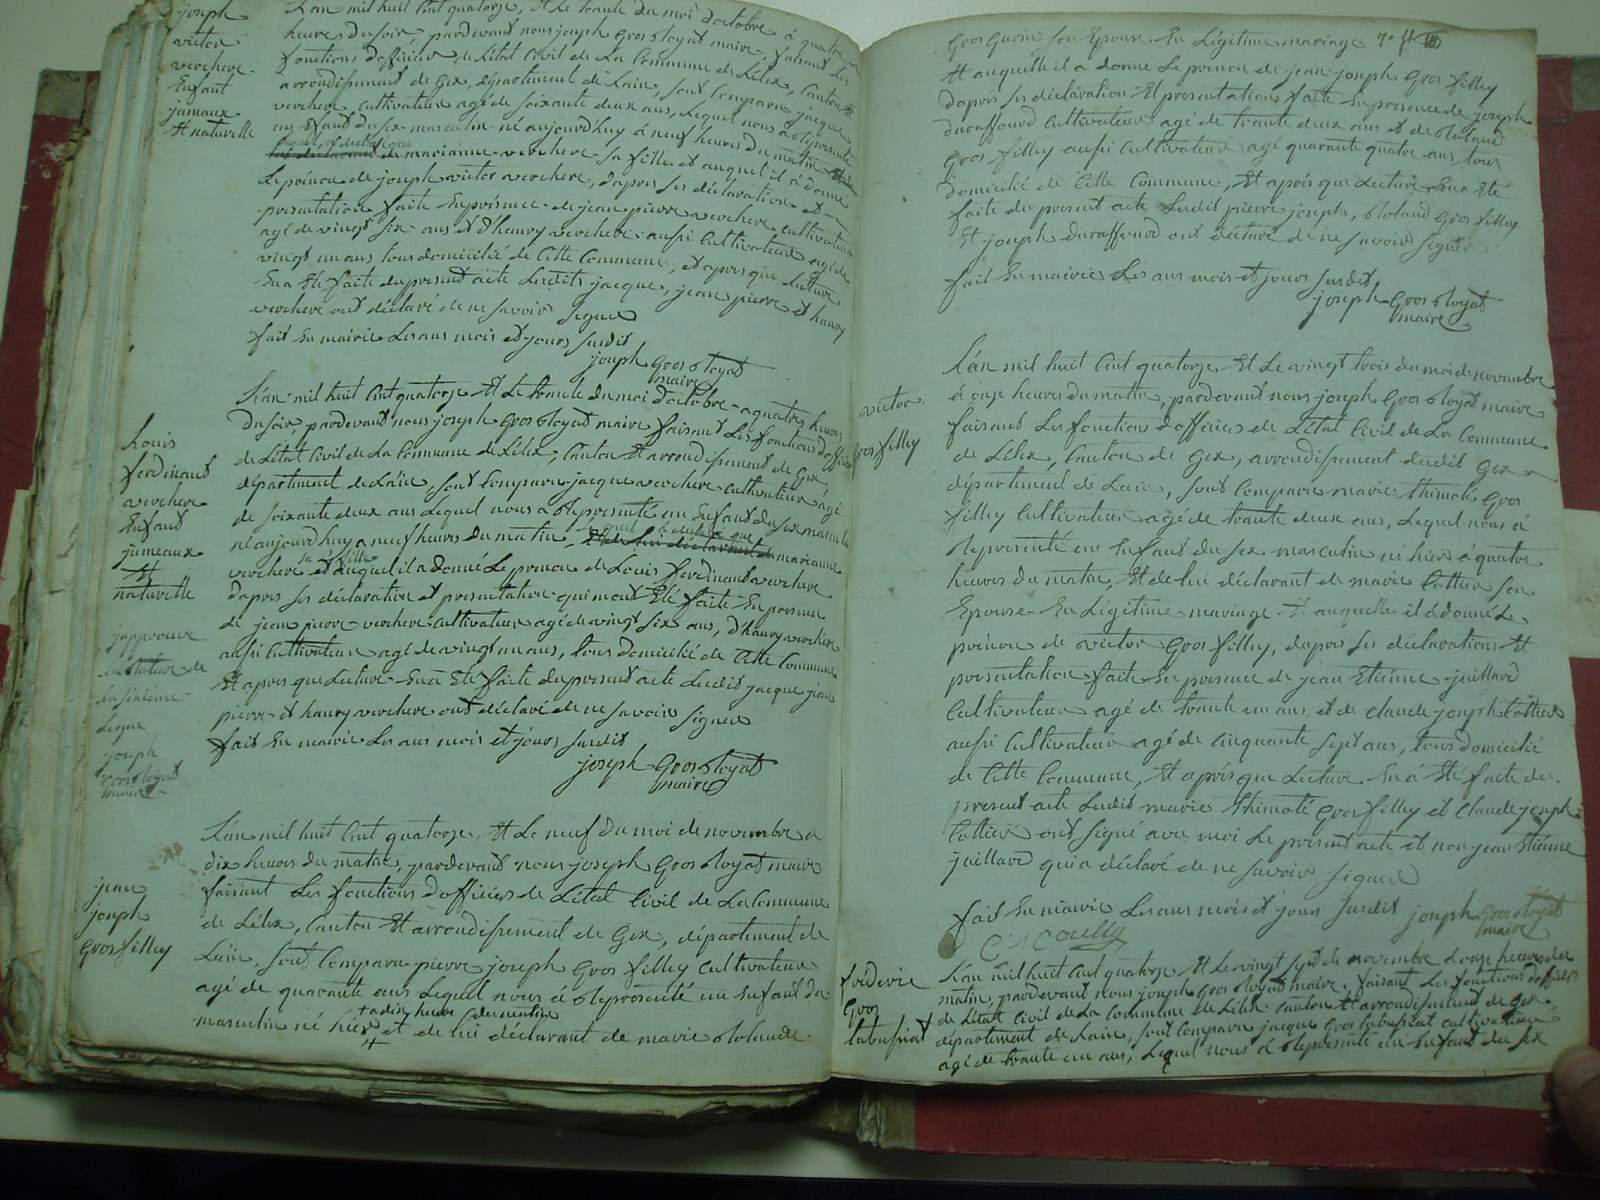 joseph
victor
verchere
Enfant
jumeaux
Et naturelle
L'an mil huit Cent quatorze, Et Le trente du moi d'octobre à quatre
heures du soir, pardevant nous joseph Gros Royat maire, faisant Les
fonctions d'officier de L'état Civil de La Commune de Lélex, Canton Et
arrondissement de Gex, département de Lain, sont Comparu jacque
verchere, Cultivateur agé de soixante deux ans, Lequel nous à Représenté
un Enfant du sex masculin né aujourd'huy à neuf heures du matin
de marianne verchere sa fille et auquel il à donné
Le prénon de joseph victor verchere, dapres ses déclaration et
présentation faite En présence de jean pierre verchere cultivateur
agé de vingt six ans et d'henry verchere aussi Cultivateur agé de
vingt un ans tous domicilié de Cette Commune, et apres que Lecture
En a Eté faite du présent acte Lesdits jacque, jean pierre et henry
verchere ont déclaré de ne savoir signer
fait En mairie Les ans mois et jours susdit
joseph Gros Royat
maire
Louis
ferdinand
verchere
Enfant
jumeaux
Et
naturelle
L'an mil huit Cent quatorze Et Le trente du moi d'octobre a quatres heures
du soir pardevant nous joseph Gros Royat maire faisant Les fonctions d'officier
de L'état Civil de La Commune de Lélex, Canton Et arrondissement de Gex,
département de Lain, sont Comparu jacque verchere Cultivateur agé
de soixante deux ans Lequel nous à Représenté un Enfant du sex masculin
né aujourd'huy a neuf heures du matin, lequel à déclaré que marianne
verchere sa fille et auquel il a donné Le prénon de Louis ferdinand verchere
dapres ses déclaration et présentation qui m'ont Eté faite En présence
de jean pierre verchere Cultivateur agé de vingt six ans, d'henry verchere
aussi Cultivateur agé de vingt un ans, tous domicilié de Cette Commune
Et apres que Lecture En a Eté faite du présent acte Lesdit jacque jean
pierre et henry verchere ont déclaré de ne savoir signer
fait En mairie Les ans mois et jours susdit
joseph Gros Royat
maire
japprouve
la Rature de
la sixième
Ligne
joseph
Gros Royat
maire
jean
joseph
Gros filley
L'an mil huit Cent quatorze, Et Le neuf du moi de novembre a
dix heures du matin, pardevant nous joseph Gros Royat maire
faisant Les fonctions d'officier de L'état Civil de La Commune
de Lélex, Canton Et arrondissement de Gex, département de
Lain, sont Comparu pierre joseph Gros filley Cultivateur
agé de quarante ans Lequel nous à Représenté un Enfant du
a dix heure du matin
masculin né hier et de lui déclarant de marie Rolande
Gros Gurin son Epouse En Légitime mariage
Et auquelle il a donné Le prénon de jean joseph Gros filley
dapres ses déclaration Et présentation faite En présence de joseph
duraffourd Cultivateur agé de trante deux ans et de Roland
Gros filley aussi Cultivateur agé quarante quatre ans, tous
domicilié de Cette Commune, Et après que Lecture En a Eté
faite du présent acte Lesdit pierre joseph, Roland Gros filley
Et joseph duraffourd ont déclaré de ne savoir signer
fait En mairie Les ans mois et jours susdit
joseph Gros Royat
maire
victor
Gros filley
L'an mil huit Cent quatorze Et Le vingt trois du moi de novembre
à onze heures du matin, pardevant nous joseph Gros Royat maire
faisant Les fonction d'officier de L'état Civil de La Commune
de Lélex, Canton de Gex, arrondissement dudit Gex
département de Lain, sont Comparu marie thimoté Gros
filley Cultivateur agé de trante deux ans, Lequel nous à
Représenté un Enfant du sex masculin né hier à quatre
heures du matin, Et de lui déclarant de marie Cottier son
Epouse En Légitime mariage Et auquelle il à donné Le
prénon de victor Gros filley, dapres ses déclarations Et
présentation faite En présence de jean Etiénne juillard
Cultivateur agé de trante un ans, et de Claude joseph Cottier
aussi Cultivateur agé de cinquante sept ans, tous domicilié
de Cette Commune, Et après que Lecture En à Eté faite du
présent acte Lesdit marie thimoté Gros filley et Claude joseph
Cottier ont signé avec moi Le présent acte et non jean Etiénne
juillard qui a déclaré de ne savoir signer
fait En mairie Les ans mois et jours susdit joseph Gros Royat
maire
féderic
Gros
Labussiat
L'an mil huit Cent quatorze Et Le vingt sept de novembre à onze heures du
matin, pardevant nous joseph Gros Royat maire, faisant Les fonctions d'officier
de L'état Civil de La Commune de Lélex Canton Et arrondissement de Gex
département de Lain, sont Comparu jacque Gros Labussiat cultivateur
agé de trante un ans, Lequel nous à Représenté un Enfant du sex